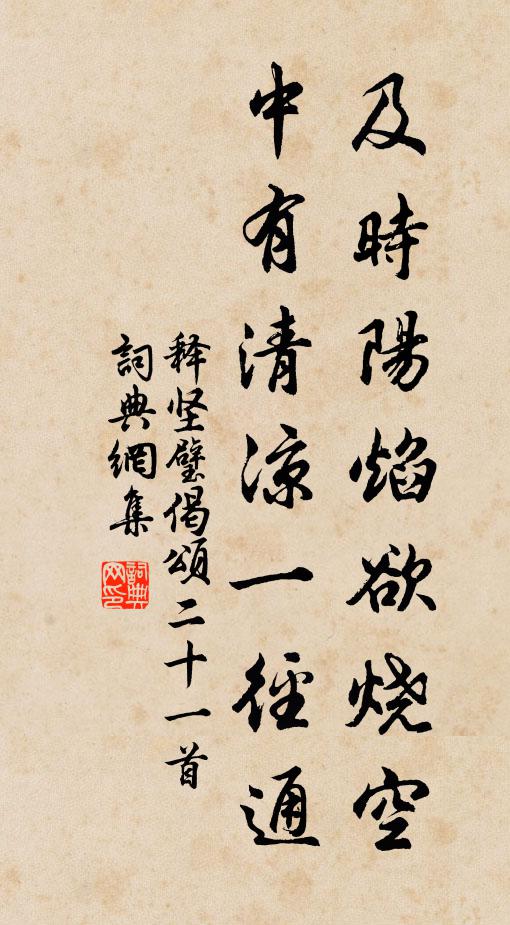 及時陽焰欲烧空
中有清涼一徑通
释坚璧偈頌二十一首
詞典網集
詞典网印